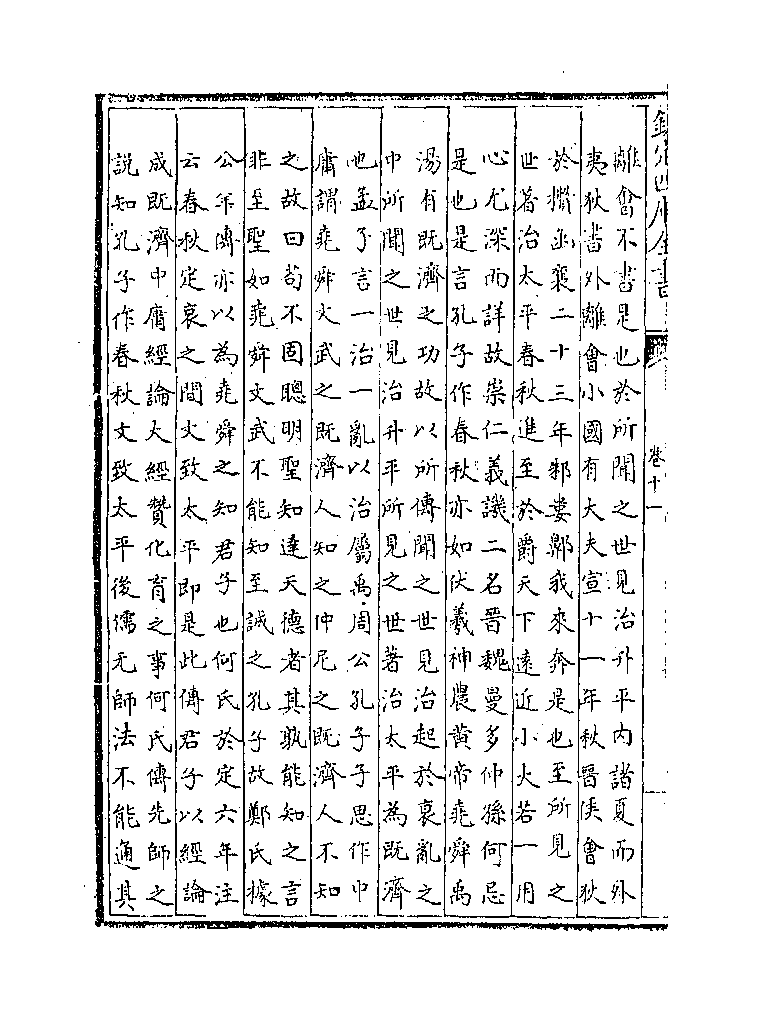 欽定四庫全書
卷十一
離會不書是也於所聞之世見治升平内諸夏而外
夷狄書外離會小國有大夫宣十一年秋晉侯會狄
於攢函襄二十三年邾婁鄸我來奔是也至所見之
世著治太平春秋進至於爵天下逺近小大若一用
心尤深而詳故崇仁義譏二名晉魏曼多仲孫何忌
是也是言孔子作春秋亦如伏羲神農黄帝堯舜禹
湯有既濟之功故以所傳聞之世見治起於衰亂之
中所聞之世見治升平所見之世著治太平為既濟
也孟子言一治一亂以治屬禹周公孔子子思作中
庸謂堯舜文武之既濟人知之仲尼之既濟人不知
之故曰茍不固聰明聖知達天德者其孰能知之言
非至聖如堯舜文武不能知至誠之孔子故鄭氏據
公羊傳亦以為堯舜之知君子也何氏於定六年注
云春秋定哀之間文致太平即是此傳君子以經論
成既濟中庸經論大經贊化育之事何氏傳先師之
説知孔子作春秋文致太平後儒无師法不能通其